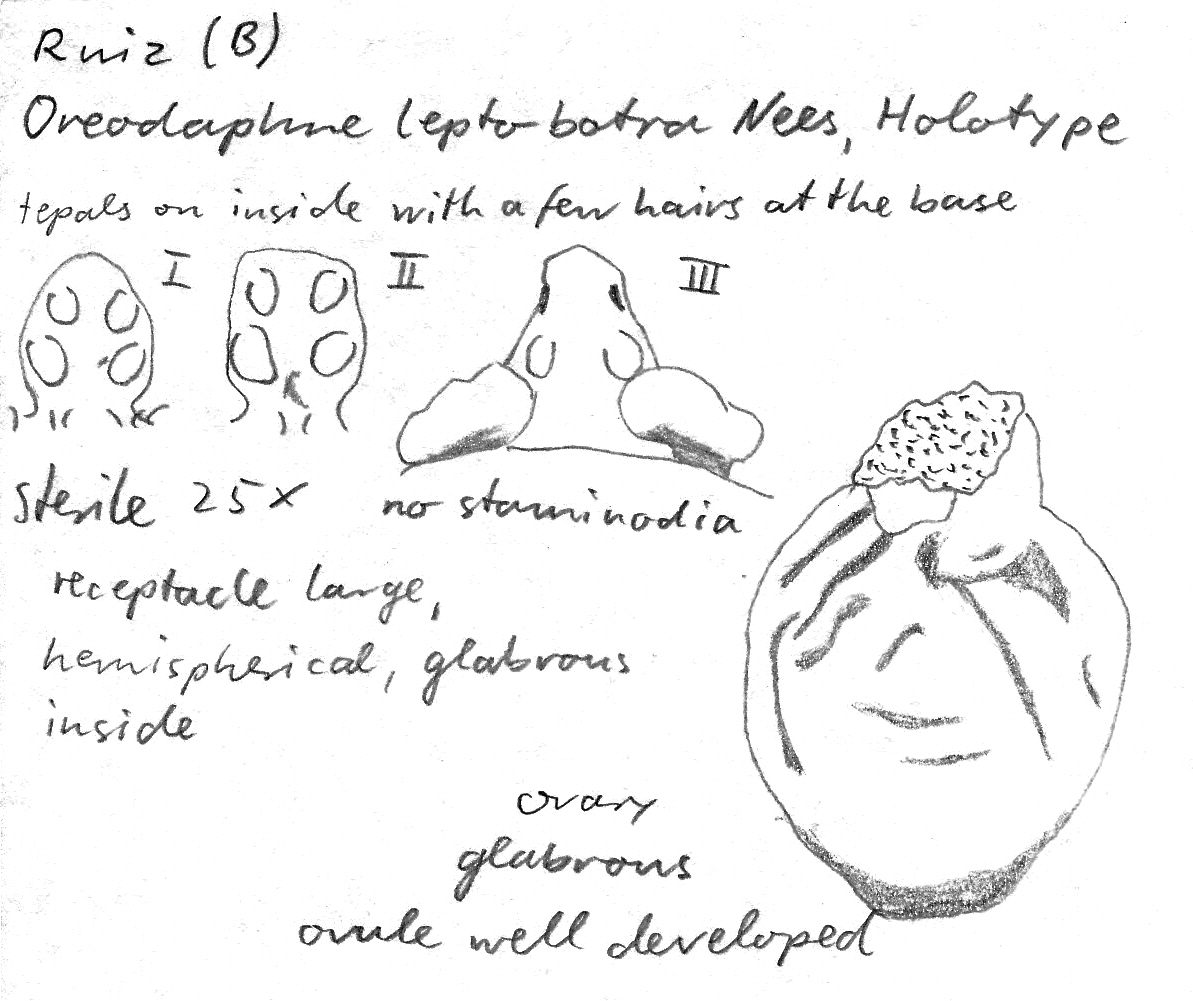 Ruiz (B)
Oreodaphne lepto-botra Nees, Holotype
tepals on inside with a few hairs at the base
I II III
sterile 25x no staminodia
receptacle large,
hemispherical, glabrous
inside
ovary
glabrous
ovule well developed